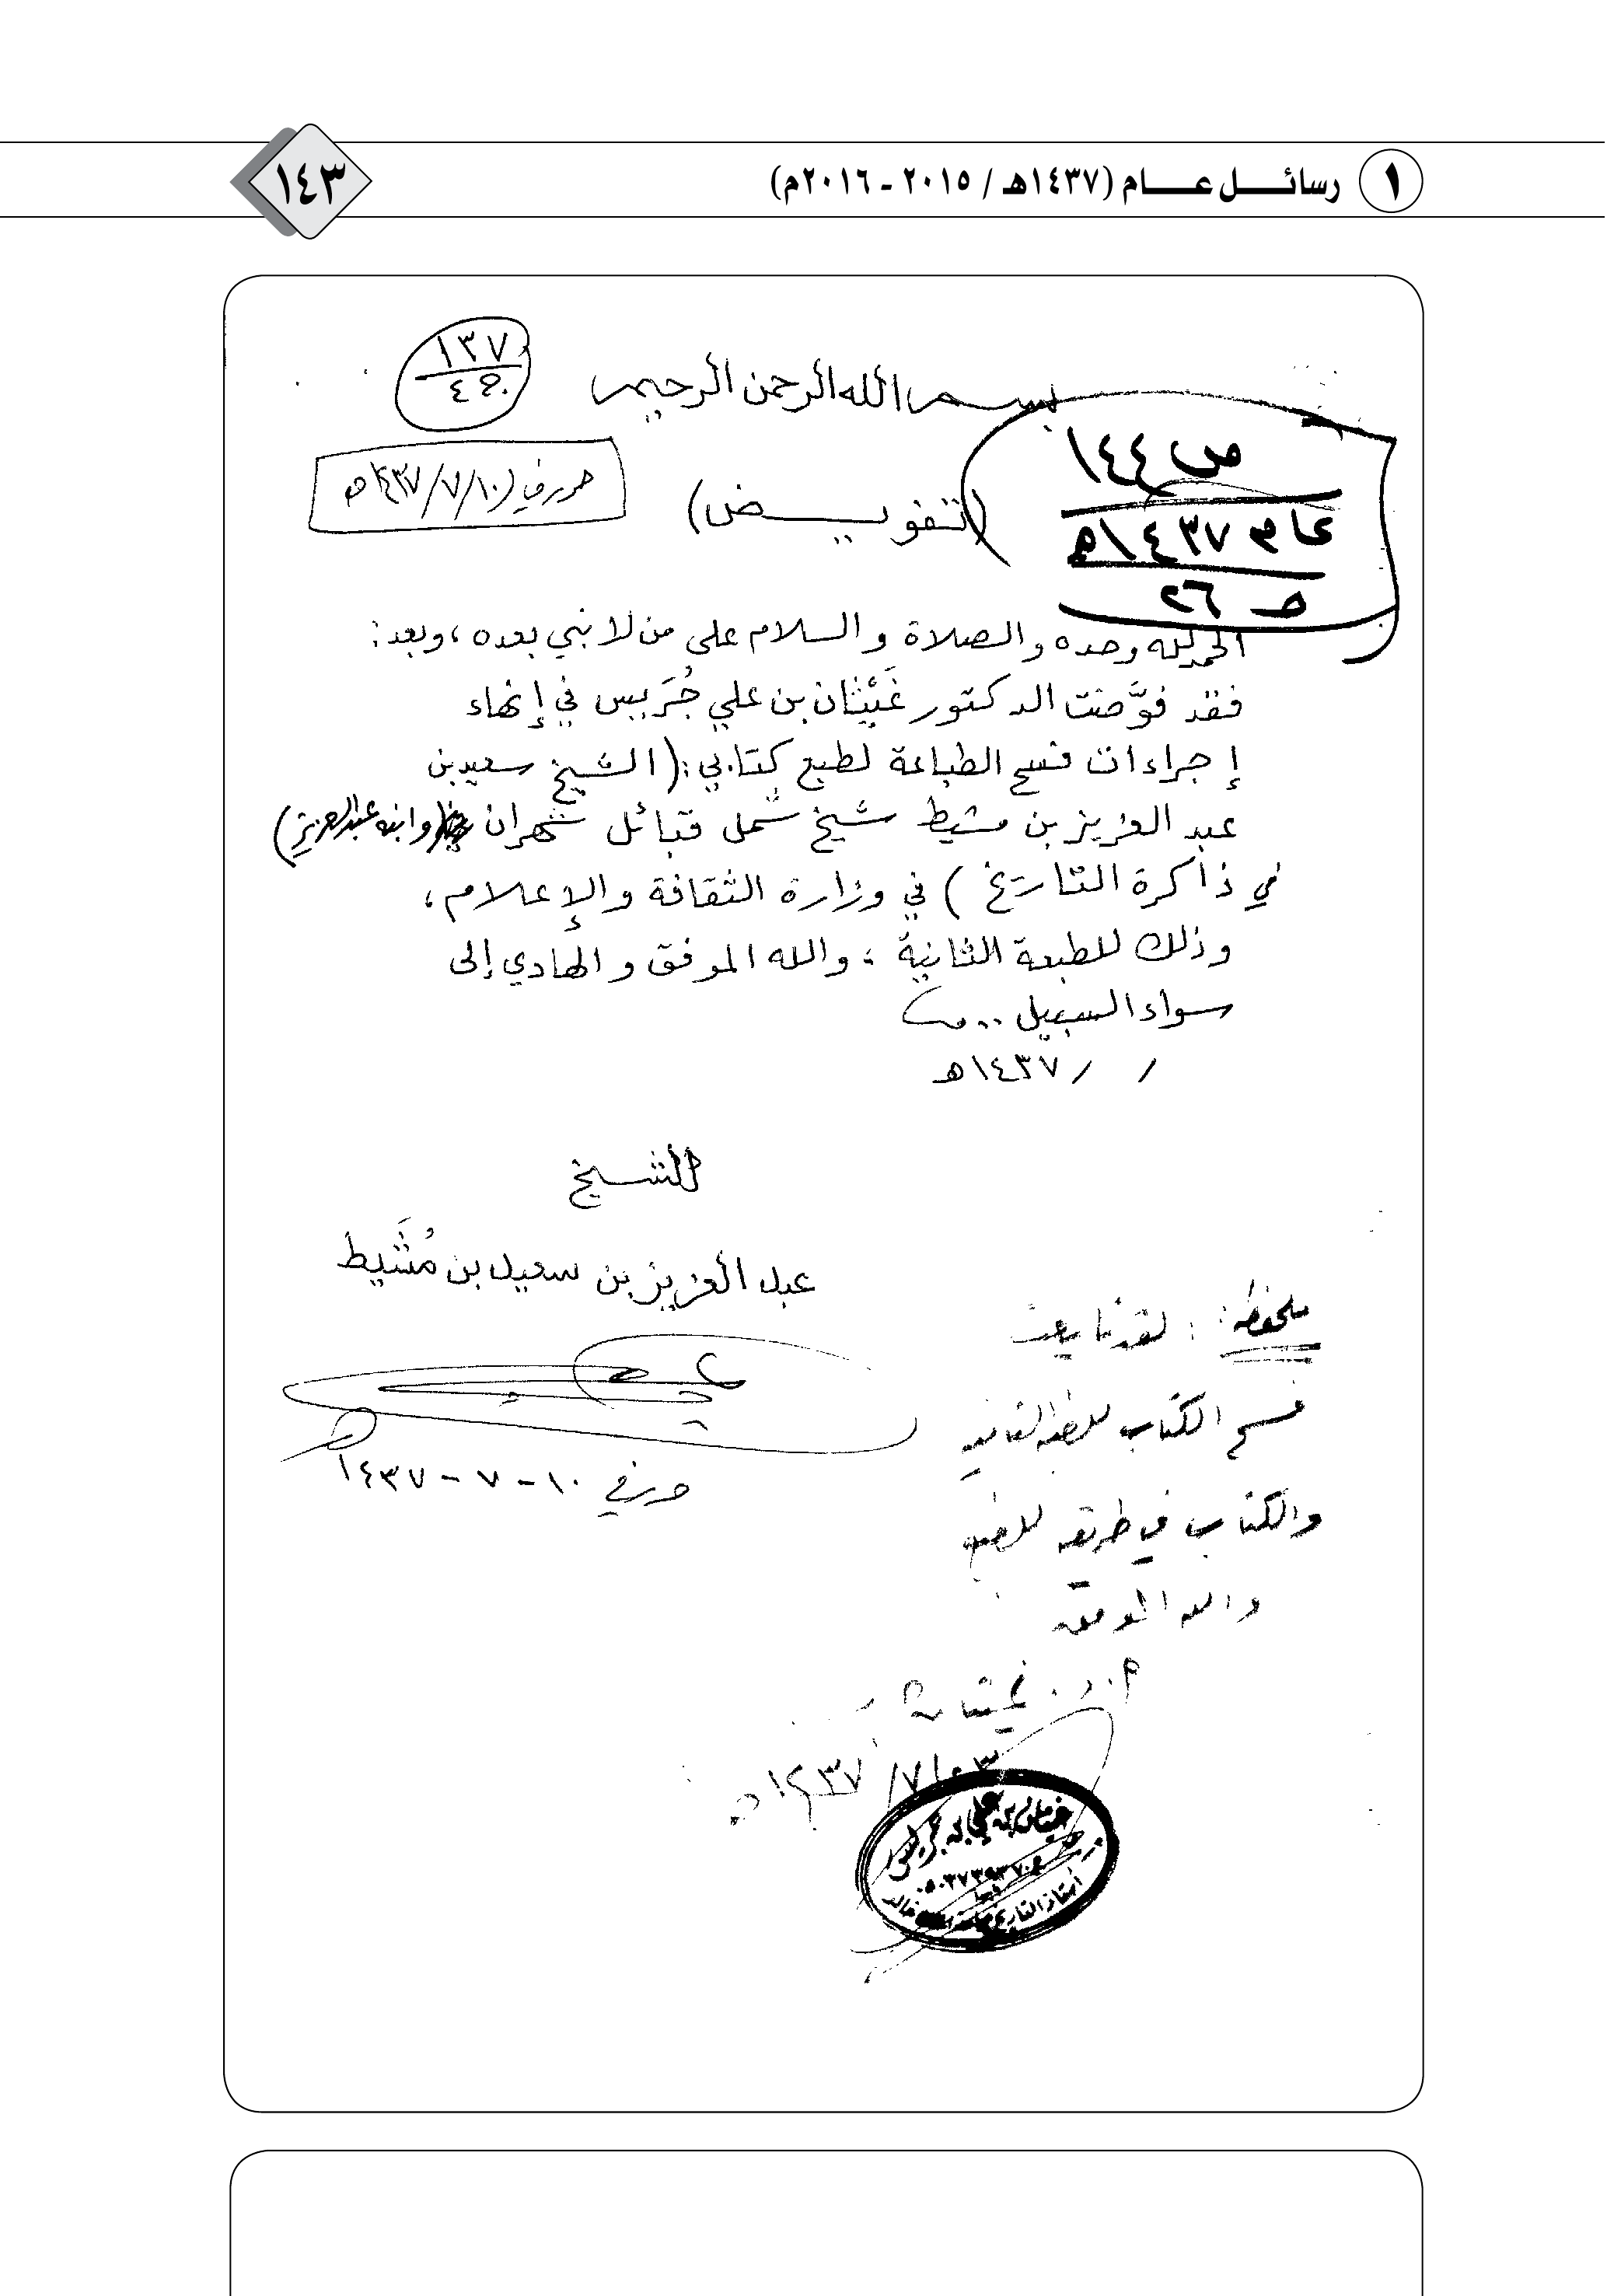 ١ رسائــــل عــــام (١٤٣٧هـ / ٢٠١٥ ـ ٢٠١٦م)
١٤٣
١٣٧
ج٤
بسم الله الرحمن الرحيم
ص ١٤٤
عام ١٤٣٧هـ
ح ٢٦
حرر في (١٠/٧/١٤٣٧هـ)
(تفويض)
الحمد لله وحده والصلاة والسلام على من لا نبي بعده ، وبعد :
فقد فوَّضت الدكتور غَيْثان بن علي جُرَيس في إنهاء
إجراءات فسح الطباعة لطبع كتابي : (الشيخ سعيد بن
عبد العزيز بن مشيط شيخ شمل قبائل شهران (وابنه عبدالعزيز)
في ذاكرة التاريخ ) في وزارة الثقافة والإعلام ،
وذلك للطبعة الثانية ، والله الموفق والهادي إلى
سواء السبيل ..
/ / ١٤٣٧هـ
الشيخ
عبد العزيز بن سعيد بن مُشَيط
حرر في ١٠ - ٧ - ١٤٣٧
ملحظة : لقد تابعت
فسح الكتاب للطبعة الثانية
والكتاب في طريقه للطبع
والله الموفق
أ.د. غيثان
/٧/١٤٣٧هـ
غيثان بن علي بن جريس
أستاذ التاريخ خالد